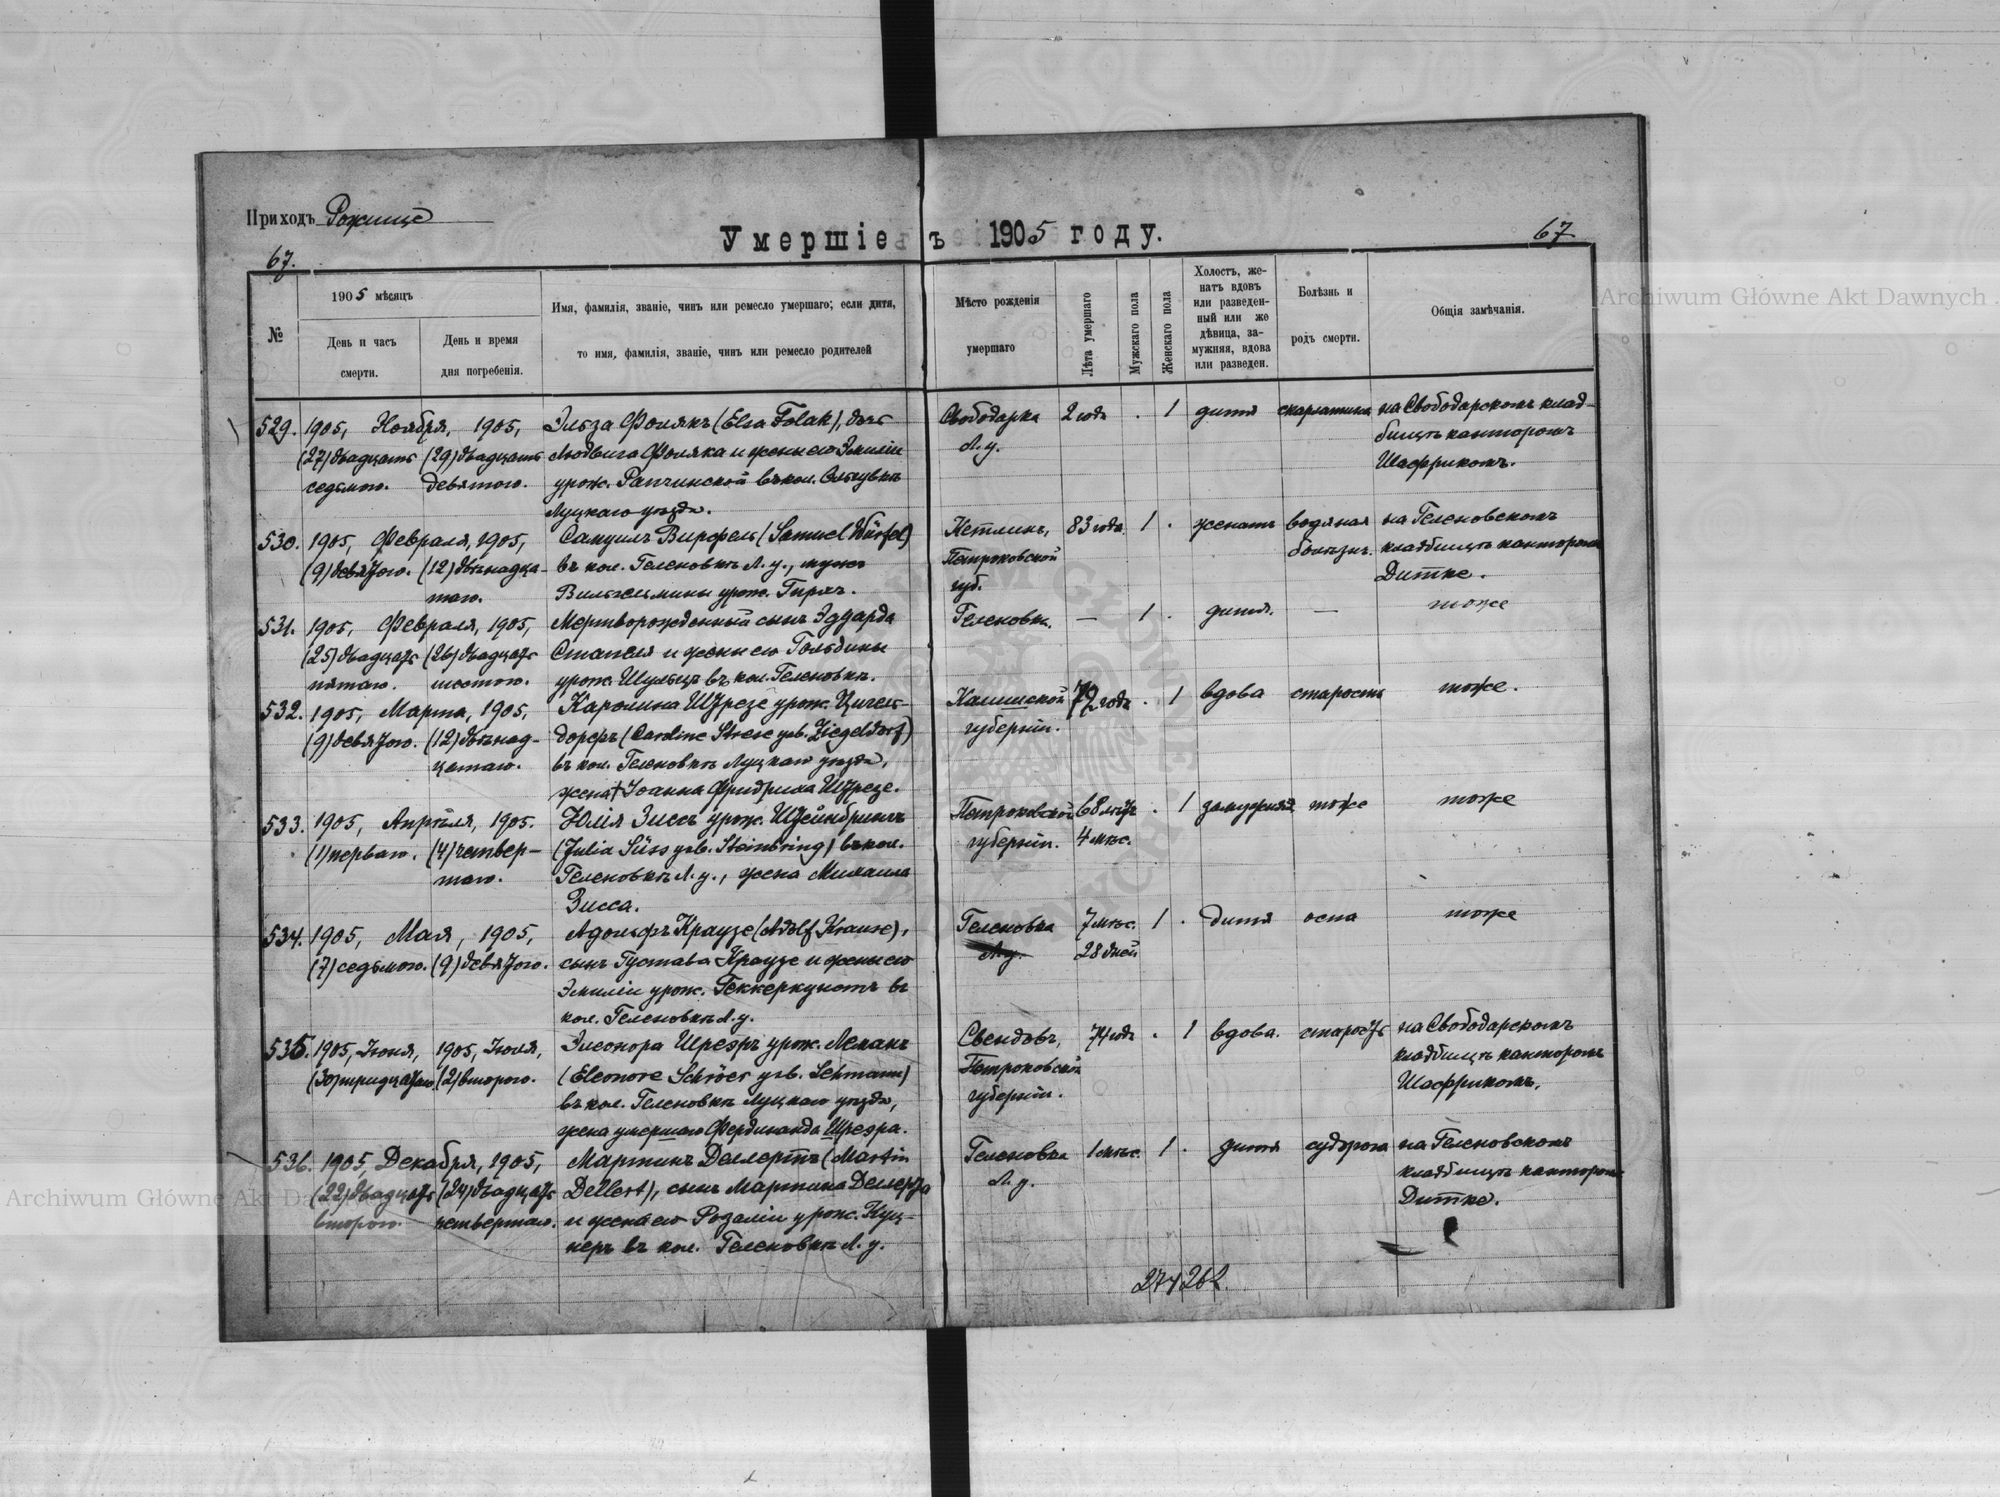 Приходъ Рожище
Умершіе въ 1905 году.
67.
67
№
1905 мѣсяцъ
День и часъ
смерти.
День и время
дня погребенія.
Имя, фамилія, званіе, чинъ или ремесло умершаго; если дитя,
то имя, фамилія, званіе, чинъ или ремесло родителей
Мѣсто рожденія
умершаго
Лѣта умершаго
Мужскаго пола
Женскаго пола
Холостъ, же-
натъ вдовъ
или разведен-
ный или же
дѣвица, за-
мужняя, вдова
или разведен.
Болѣзнь и
родъ смерти.
Общія замѣчанія.
529. 1905, Ноября, 1905, Эльза Фолякъ (Elsa Folak), дочь Свободарка 2 года . 1 дитя скарлатина на Свободарскомъ клад-
(27) двадцать (29) двадцать Людвига Фоляка и жены его Эмиліи Л. у. бищѣ канторомъ
седьмого. девятого. урож. Рапчинской въ кол. Шаффрикомъ.
Луцкаго уѣзда.
530. 1905, Февраля, 1905, Самуилъ Вирфель (Samuel Würfel) 83 года 1 . женатъ водяная на Геленовскомъ
(9) девятого. (12) двѣнадца- въ кол. Геленовкѣ Л. у., мужъ Петроковской болѣзнь. кладбищѣ канторомъ
таго. Вильгельмины урож. губ. Дитке.
531. 1905, Февраля, 1905, Мертворожденный сынъ Эдуарда Геленовка. — 1 . дитя. — тоже
(25) двадцать (26) двадцать и жены его Гольдины
пятаго. шестого. урож. Шульцъ въ кол. Геленовкѣ.
532. 1905, Марта, 1905, Каролина Штрезе урож. Цигель- Калишской 72 года . 1 вдова старость тоже.
(9) девятого. (12) двѣнад- дорфъ (Caroline Strese geb. Ziegeldorf) губерніи.
цатаго. въ кол. Геленовкѣ Луцкаго уѣзда,
жена † Іоанна Фридриха Штрезе.
533. 1905, Апрѣля, 1905. Юлія Зиссъ урож. Штейнбрингъ Петроковской 68 лѣтъ . 1 замужняя тоже тоже
(1) перваго. (4) четвер- (Julia Süss geb. Steinbring) въ кол. губерніи. 4 мѣс.
таго. Геленовкѣ Л. у., жена Михаила
Зисса.
534. 1905, Мая, 1905, Адольфъ Краузе (Adolf Krause), Геленовка 7 мѣс. 1 . дитя оспа тоже
(7) седьмого. (9) девятого. сынъ Густава Краузе и жены его Л. у. 28 дней
Эмиліи урож. въ
кол. Геленовкѣ Л. у.
535. 1905, Іюня, 1905, Іюля, Элеонора Шреэръ урож. Леманъ Свендовъ, 74 года . 1 вдова. старость на Свободарскомъ
(30) тридцатаго (2) второго. (Eleonore Schröer geb. Lehmann) Петроковской кладбищѣ канторомъ
въ кол. Геленовкѣ Луцкаго уѣзда, губерніи. Шаффрикомъ.
жена умершаго Фердинанда Шреэра.
536. 1905, Декабря, 1905, Мартинъ Деллертъ (Martin Геленовка 1 мѣс. 1 . дитя судорога на Геленовскомъ
(22) двадцать (24) двадцать Dellert), сынъ Мартина Деллерта Л. у. кладбищѣ канторомъ
второго. четвертаго. и жены его Розаліи урож. Куц- Дитке.
неръ въ кол. Геленовкѣ Л. у.
274 262.
Archiwum Główne Akt Dawnych
Archiwum Główne Akt Da